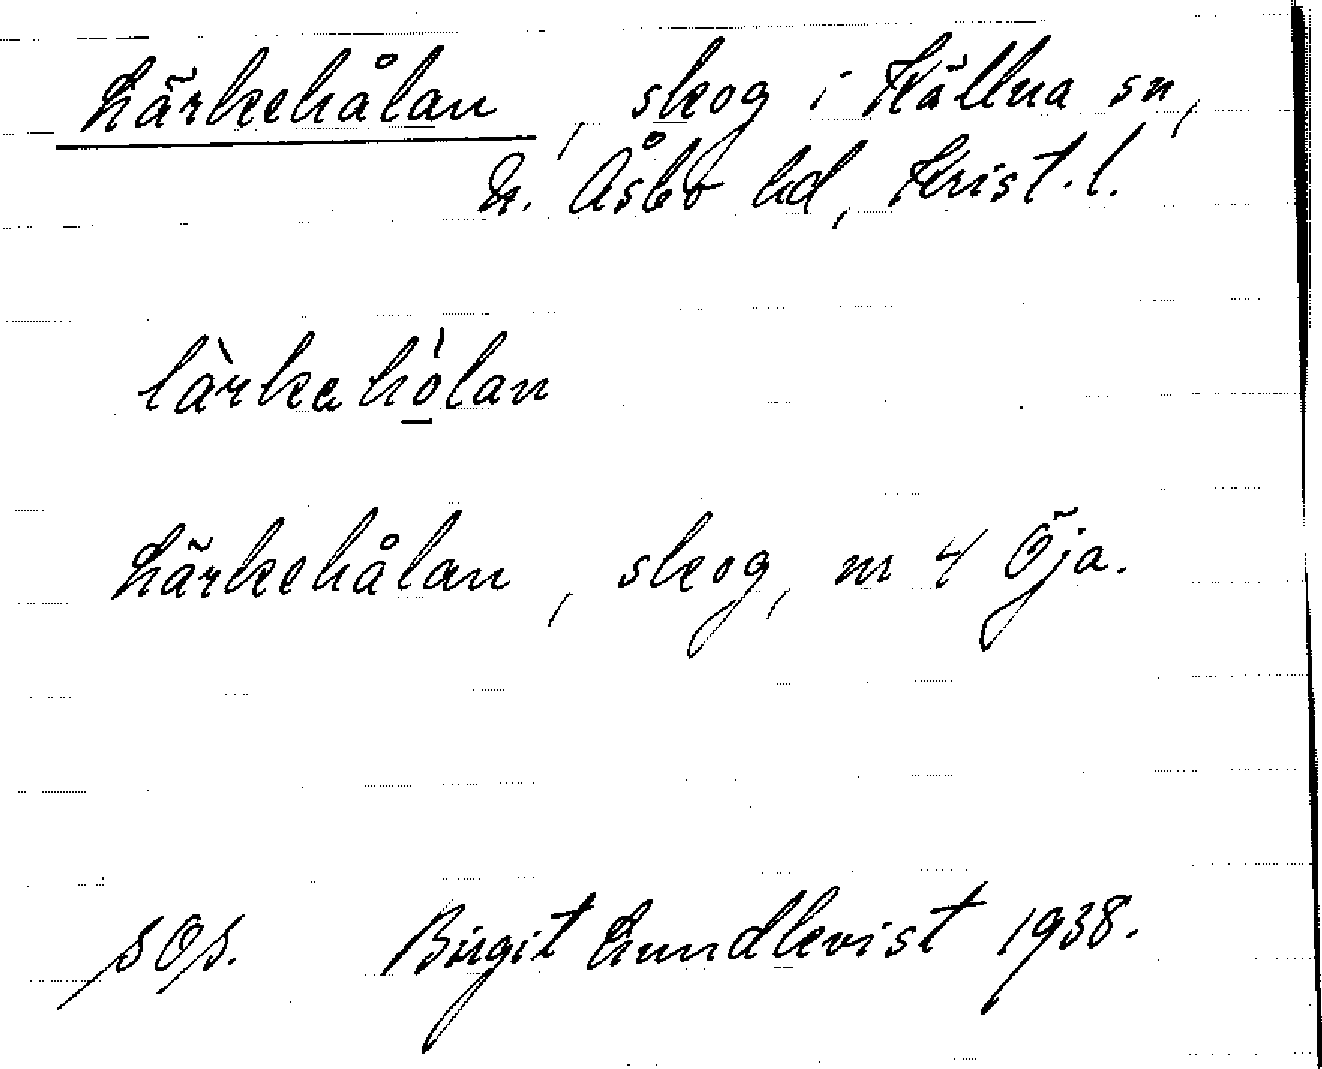 Lärkehålan, skog i Källna sn,
N. Åsbo hd, Krist. l.
là̀rkahò̱lan
Lärkehålan, skog, nr 4 Öja.
Birgit Lundkvist 1938.